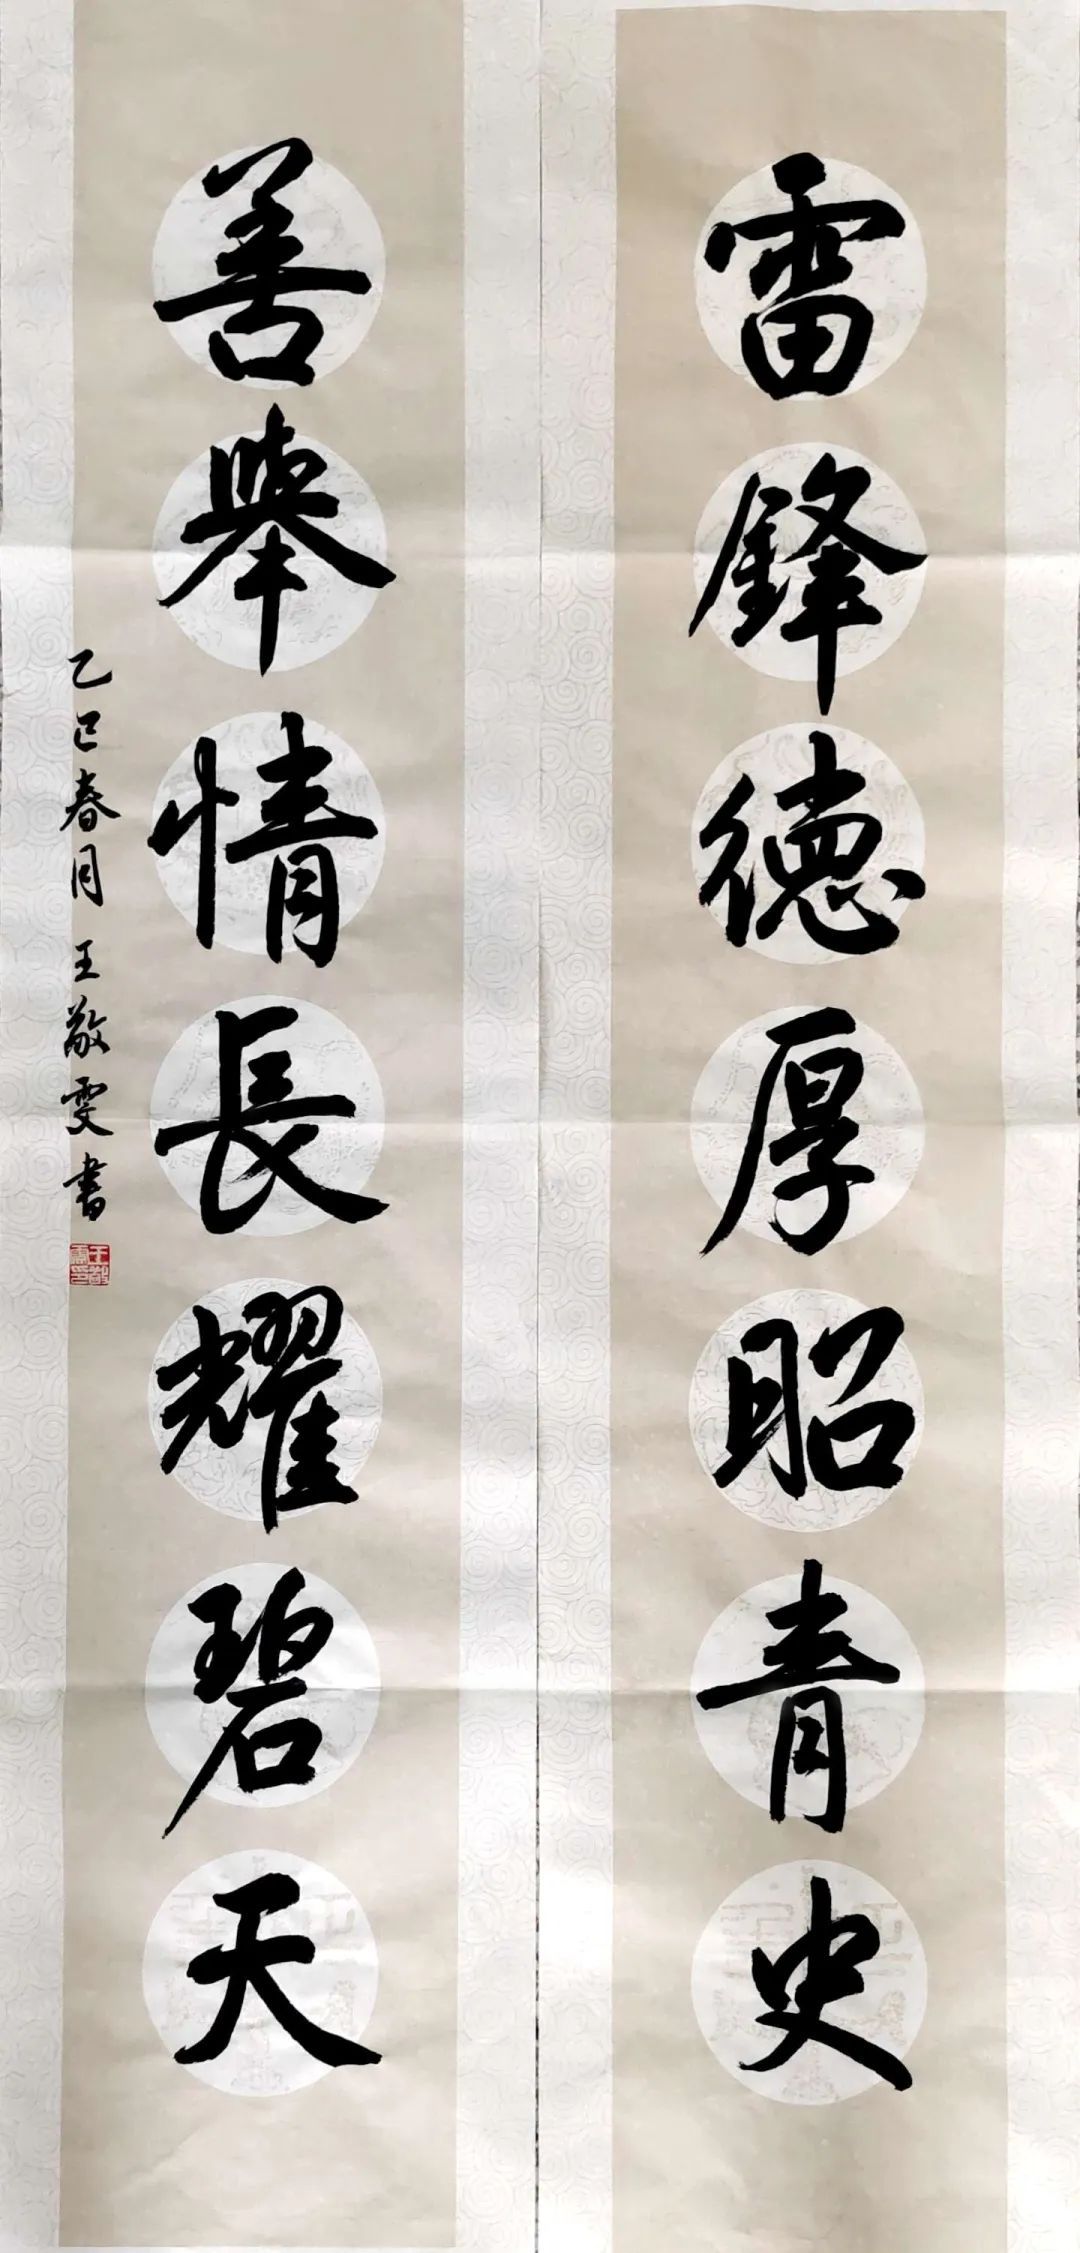 雷鋒德厚昭青史
善舉情長耀碧天
乙巳春月 王敬雯書
王敬雯印